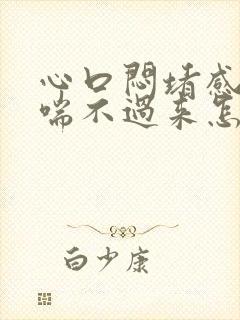 心口闷堵感
喘不过来怎
白少康